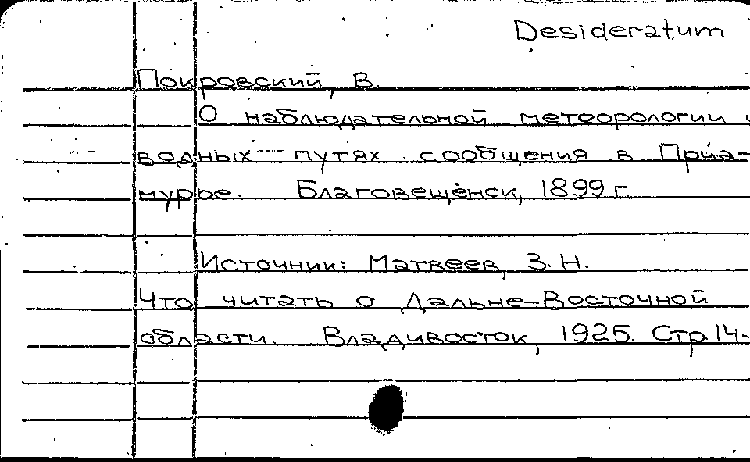 Desideratum
Покровский, В.
О наблюдательной метеорологии и
водных путях сообщения в Приа-
мурье. Благовещенск, 1899 г.
Источник: Матвеев, З. Н.
Что читать о Дальне-Восточной
области. Владивосток, 1925. Стр. 14-